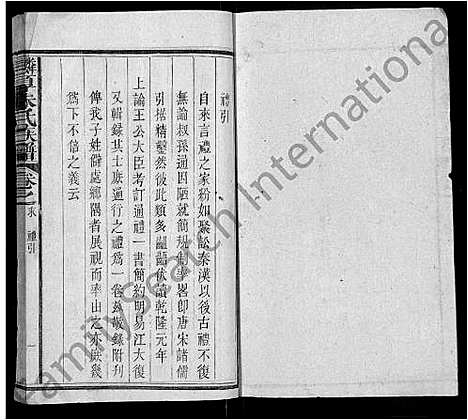 禮引
自來言禮之家紛如聚訟秦漢以後古禮不復
無論叔孫通因陋就簡規制草畧卽唐宋諸儒
引據精鑿然彼此類多齟齬伏讀乾隆元年
上諭王公大臣考訂通禮一書簡約明易江大復
又輯錄其士庶通行之禮爲一卷茲敬錄附刋
俾我子姓僻處鄉隅者展視而率由之亦庶幾
爲下不倍之義云
朱氏族譜
卷之末 禮引 一
Familysearch International